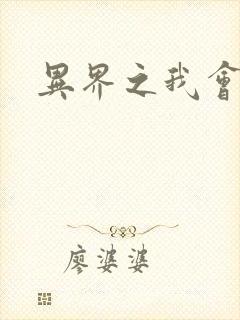 異界之我會
廖婆婆